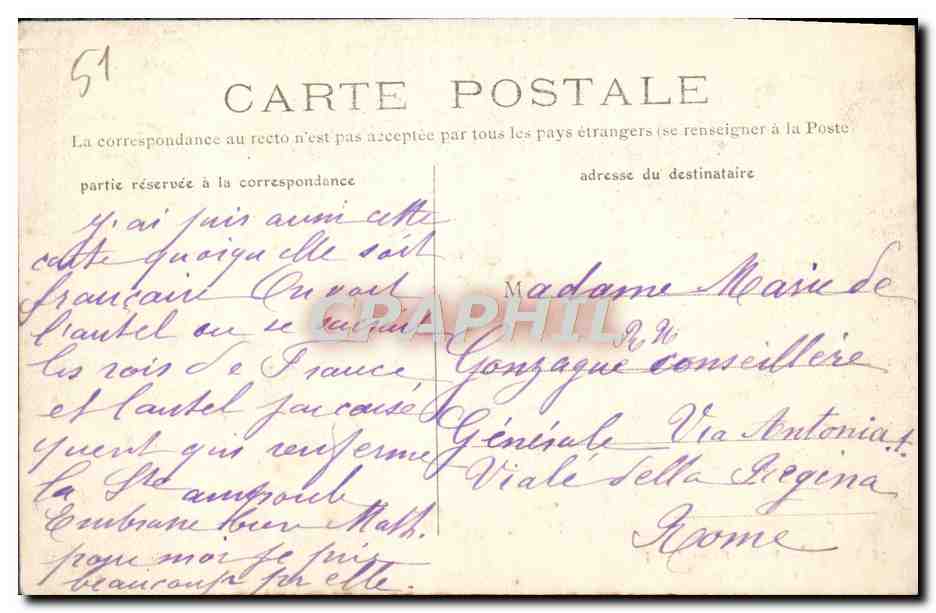 51
CARTE POSTALE
La correspondance au recto n'est pas acceptée par tous les pays étrangers (se renseigner à la Poste
partie réservée à la correspondance
adresse du destinataire
J'ai pris aussi cette
carte quoiqu'elle soit
française On voit
l'autel ou se
les rois de France
et l'autel
quent qui renferme
la Ste ampoule
Embrasse bien Math.
pour moi je prie
beaucoup pr elle.
Madame Marie de
Gonzague conseillère
Générale Via Antonia
Viale della Regina
Rome
CPAPHIL